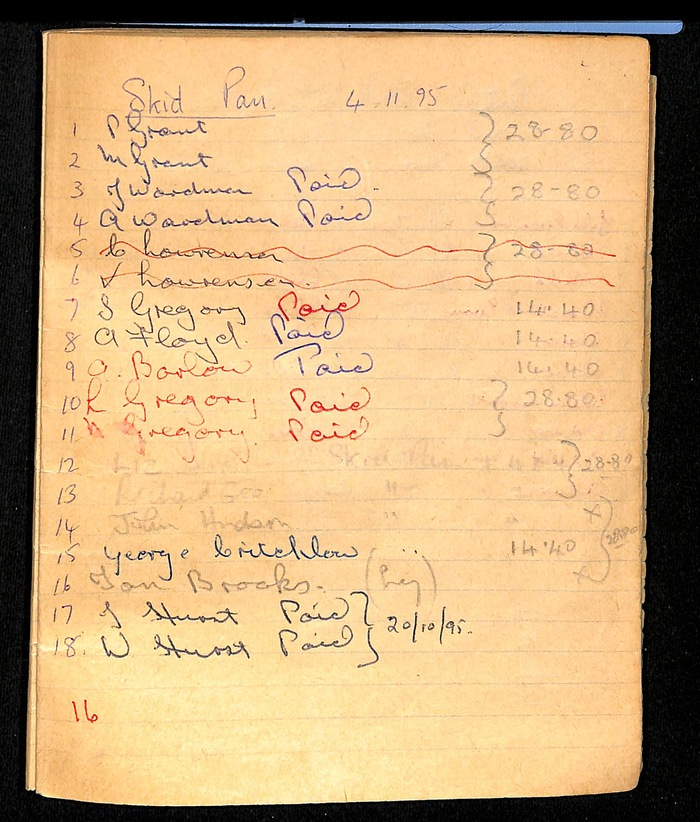 Skid Pan. 4.11.95
1 P Grant } 28-80
2 M Grant
3 J Wardman Paid. } 28-80
4 A Wardman Paid
5 Lowrenson } 28-80
6 Lowrenson.
7 S Gregory Paid 14.40
8 A Floyd. Paid 14.40
9 A. Barlow Paid 14.40
10 L Gregory Paid } 28.80
11 Gregory. Paid
12 Liz Skid Pan } 28-80
13 Richard "
14 John Hudson " " X
15 George Critchlow 14.40
16 Ian Brooks. X
17 J Hurst Paid } 20/10/95.
18. W Hurst Paid
16